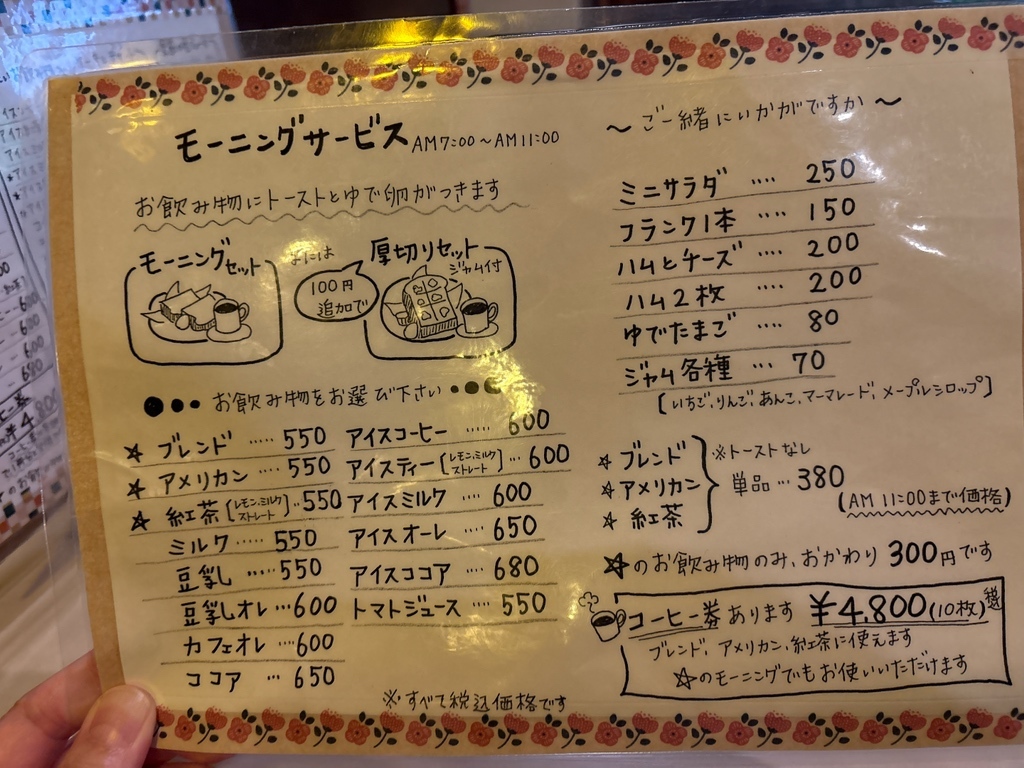 モーニングサービス AM7:00〜AM11:00
お飲み物にトーストとゆで卵がつきます
モーニングセット
または
100円
追加で
厚切りセット
ジャム付
●●● お飲み物をお選び下さい ●●●
☆ ブレンド ····· 550
☆ アメリカン ···· 550
☆ 紅茶 [レモン、ミルク ストレート] ·· 550
ミルク ····· 550
豆乳 ····· 550
豆乳オレ ··· 600
カフェオレ ··· 600
ココア ··· 650
アイスコーヒー ···· 600
アイスティー [レモン、ミルク ストレート] ··· 600
アイスミルク ···· 600
アイスオーレ ···· 650
アイスココア ···· 680
トマトジュース ···· 550
※すべて税込価格です
〜 ご一緒にいかがですか 〜
ミニサラダ ···· 250
フランク1本 ···· 150
ハムとチーズ ···· 200
ハム2枚 ···· 200
ゆでたまご ···· 80
ジャム各種 ··· 70
[いちご、りんご、あんこ、マーマレード、メープルシロップ]
☆ ブレンド
☆ アメリカン
☆ 紅茶
※トーストなし
単品 ··· 380
(AM 11:00まで価格)
☆のお飲み物のみ、おかわり 300円です
コーヒー券あります ¥4,800(10枚)
ブレンド、アメリカン、紅茶に使えます
☆のモーニングでもお使いいただけます